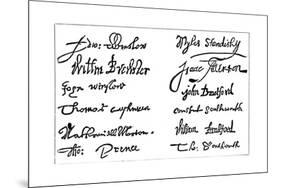 Edw: Winslow
Willm Brewster
John winslow
Thomas cushman
Nathaniell Morton.
Tho: Prence
Myles Standish
Isaac Allerton
john Bradford
Constant Southworth
William Bradford
Tho: Southworth